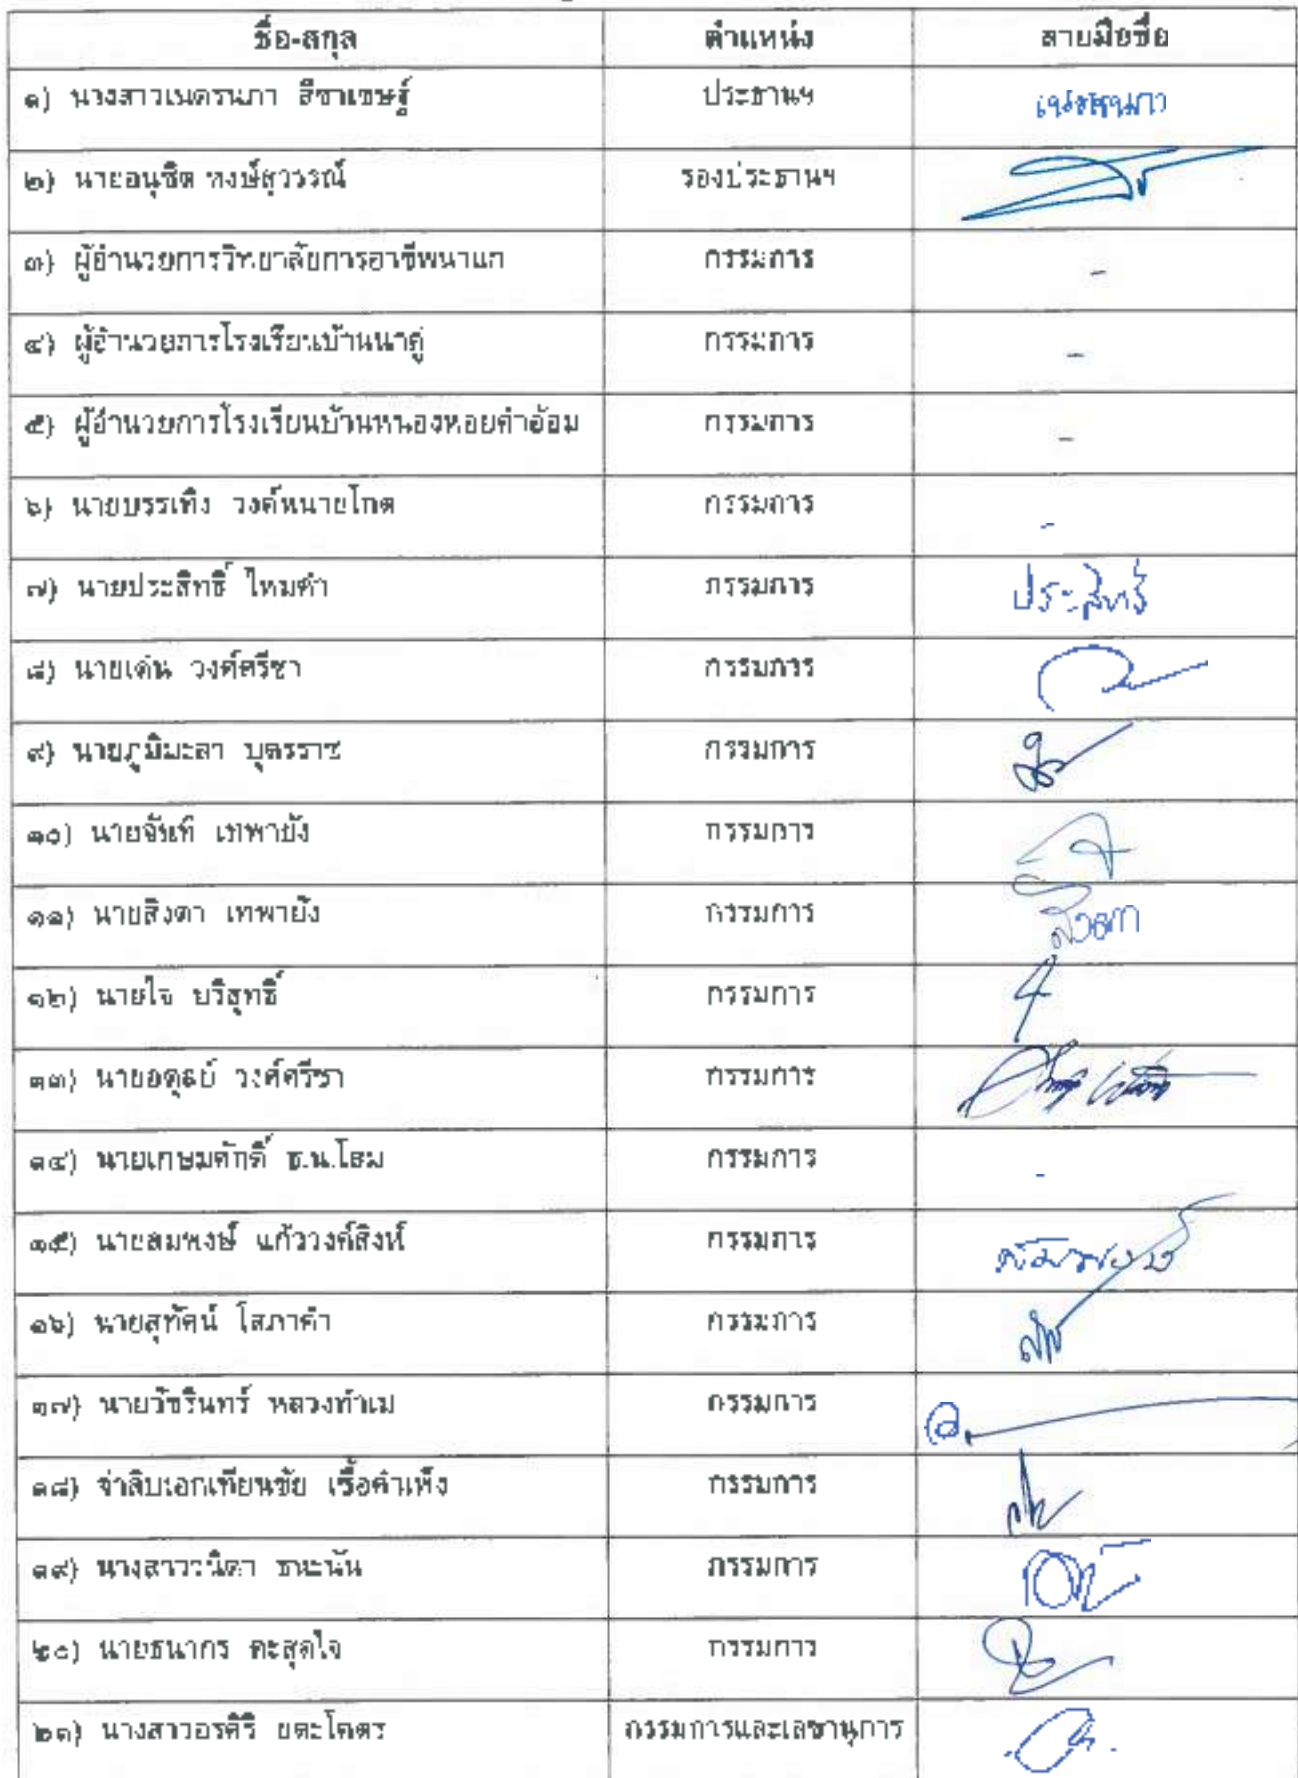 ชื่อ-สกุล ตำแหน่ง ลายมือชื่อ
๑) นางสาวเนตรนภา สีชาเชษฐ์ ประธานฯ เนตรนภา
๒) นายอนุชิต หงษ์สุวรรณ์ รองประธานฯ
๓) ผู้อำนวยการวิทยาลัยการอาชีพนาแก กรรมการ -
๔) ผู้อำนวยการโรงเรียนบ้านนาคู่ กรรมการ -
๕) ผู้อำนวยการโรงเรียนบ้านหนองหอยคำอ้อม กรรมการ -
๖) นายบรรเทิง วงค์หนายโกด กรรมการ -
๗) นายประสิทธิ์ ไหมคำ กรรมการ ประสิทธิ์
๘) นายเด่น วงศ์ศรีชา กรรมการ
๙) นายภูมิมะลา บุตรราช กรรมการ
๑๐) นายจันที เทพายัง กรรมการ
๑๑) นายสิงดา เทพายัง กรรมการ
๑๒) นายใจ บริสุทธิ์ กรรมการ
๑๓) นายอดุลย์ วงศ์ศรีชา กรรมการ
๑๔) นายเกษมศักดิ์ ธ.น.โสม กรรมการ -
๑๕) นายสมพงษ์ แก้ววงค์สิงห์ กรรมการ สมพงษ์
๑๖) นายสุทัศน์ โสภาคำ กรรมการ
๑๗) นายวัชรินทร์ หลวงทำเม กรรมการ
๑๘) จ่าสิบเอกเทียนชัย เชื้อคำเพ็ง กรรมการ
๑๙) นางสาววนิดา ธนะนัน กรรมการ
๒๐) นายธนากร คะสุดใจ กรรมการ
๒๑) นางสาวอรศิริ ยตะโคตร กรรมการและเลขานุการ